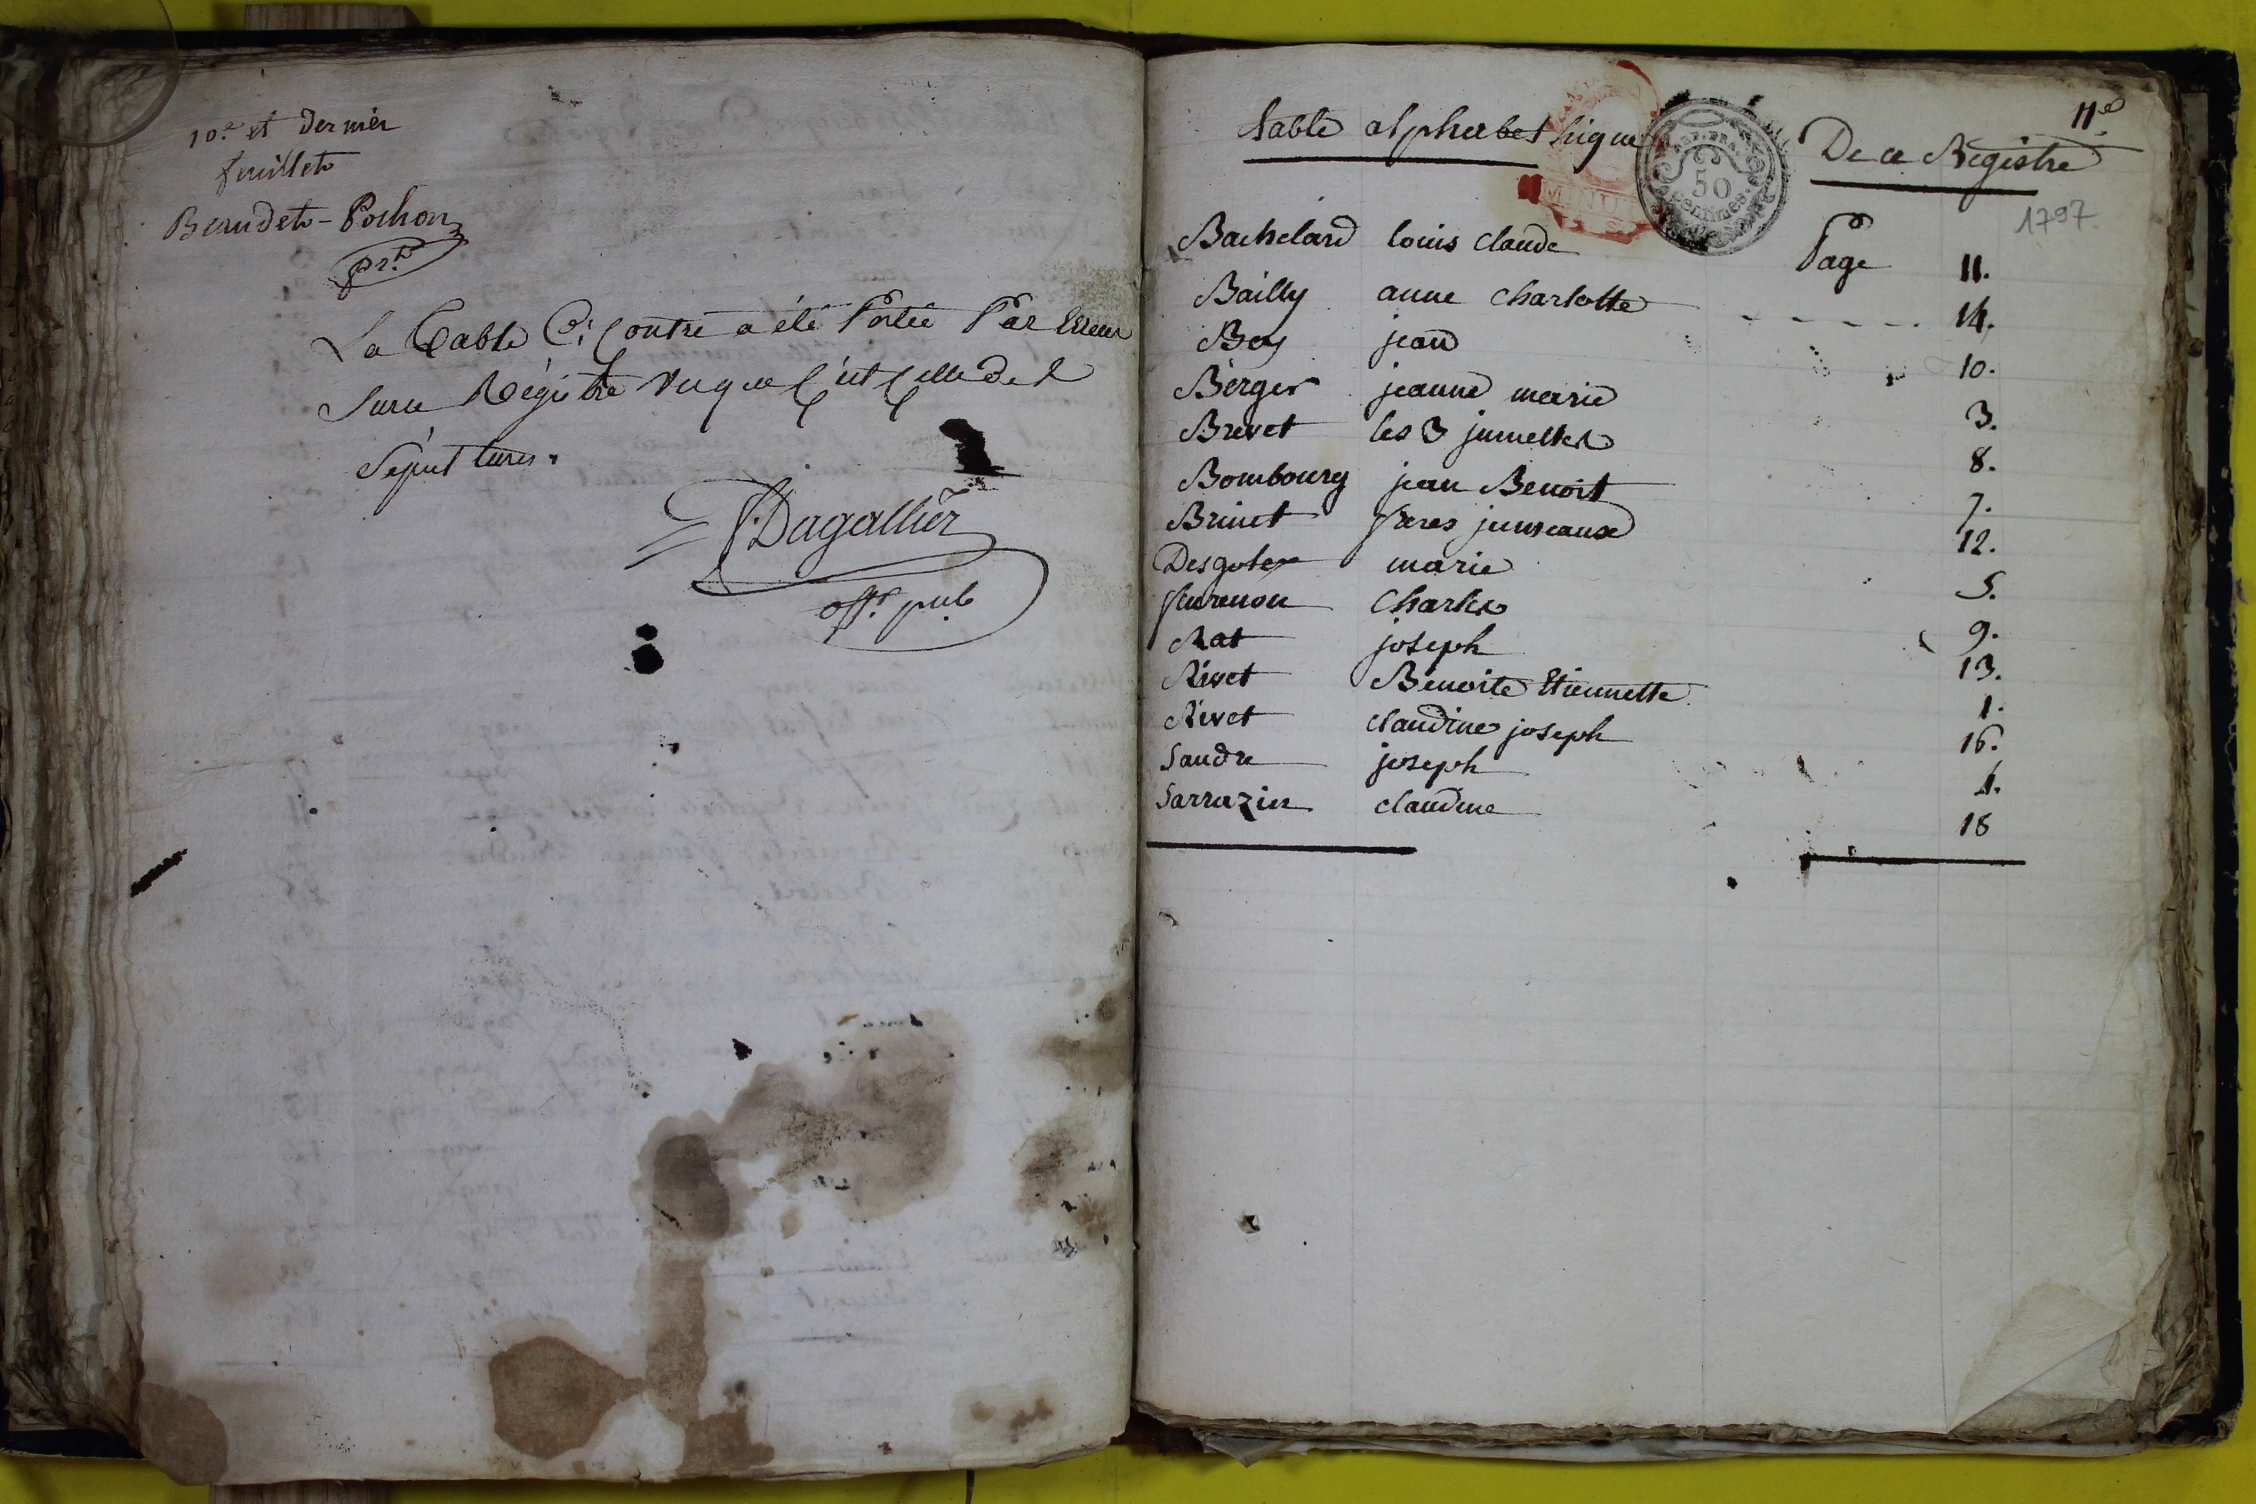 10.e et dernier
feuillet
Beaudet-Pochon
prt
La Table Ci Contre a été Portée Par Erreur
Sur ce Régistre vu que C'est Celle des
Sépultures.
Dagallier
offr. pub
table alphabethique De ce Registre
11e
1797
REP. FRA.
50
centimes
MINUT
Bachelard louis claude Page 11.
Bailly anne charlotte 14.
Bey jean 10.
Berger jeanne marie 3.
Brevet les 3 jumelles 8.
Bombourg jean Benoit 7.
Brunet freres jumeaux 12.
Desgotex marie 5.
furenon Charles 9.
Rat joseph 13.
Rivet Benoite Etiennette 1.
Rivet claudine joseph 16.
Sandre joseph 4.
Sarrazin claudine 18